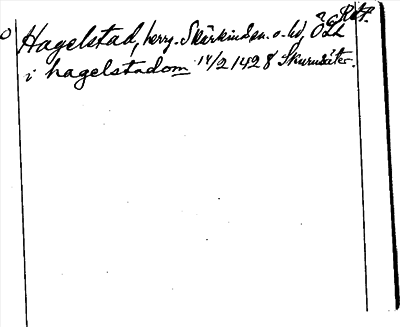 Rkt.
Hagelstad, herrg. Skärkinds sn. o. hd, ÖGL
i hagelstadom 14/2 1428 Skurusäter.